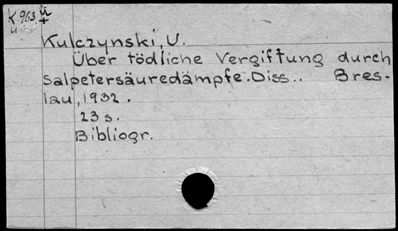 K 963 ü
Kulczynski, U.
Über tödliche Vergiftung durch
Salpetersäuredämpfe. Diss.. Bres-
lau, 1932.
23 s.
Bibliogr.